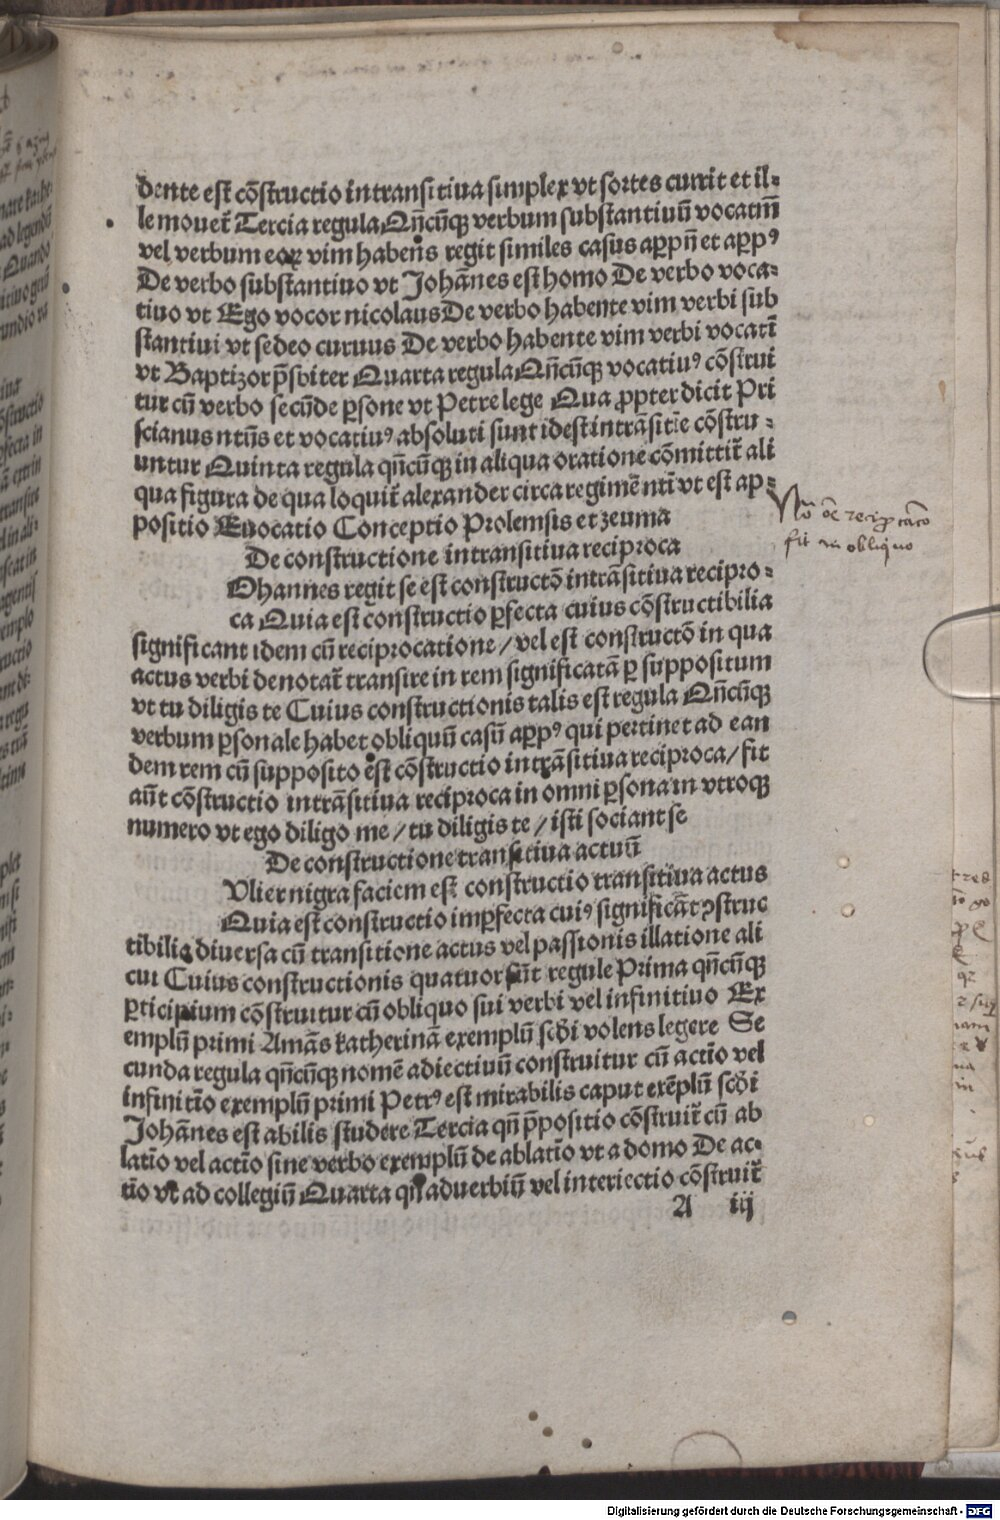 dente est cōstructio intransitiua simplex vt sortes currit et il⸗
le mouet᷑ Tercia regula Qn̄cūqꝫ verbum substantiuū vocatiū
vel verbum eoꝝ vim habens regit similes casus aꝑpn̄ et aꝑpꝰ
De verbo substantiuo vt Johānes est homo De verbo voca⸗
tiuo vt Ego vocor nicolaus De verbo habente vim verbi sub
stantiui vt sedeo curuus De verbo habente vim verbi vocatī
vt Baptizor p̄sbiter Quarta regula Qn̄cūqꝫ vocatiuꝰ cōstrui
tur cū verbo secūde ꝑsone vt Petre lege Qua ꝓpter dicit Pri
scianus ntīs et vocatiuꝰ absoluti sunt idest intrāsitīe cōstru⸗
untur Quinta regula qn̄cūqꝫ in aliqua oratione cōmittit᷑ ali
qua figura de qua loquit᷑ alexander circa regimē ntī vt est ap⸗
positio Euocatio Conceptio Prolemsis et zeuma
De constructione intransitiua reciproca
Ohannes regit se est constructō intrāsitiua recipro⸗
ca Quia est constructio ꝑfecta cuius cōstructibilia
significant idem cū reciprocatione / vel est constructō in qua
actus verbi denotat᷑ transire in rem significatā ꝑ suppositum
vt tu diligis te Cuius constructionis talis est regula Qn̄cūqꝫ
verbum ꝑsonale habet obliquū casū aꝑpꝰ qui pertinet ad ean
dem rem cū supposito est cōstructio intrāsitiua reciproca / fit
aūt cōstructio intrāsitiua reciproca in omni ꝑsona in vtroqꝫ
numero vt ego diligo me / tu diligis te / isti sociant se
De constructione transitiua actuū
Vlier nigra faciem est constructio transitiua actus
Quia est constructio imꝑfecta cuiꝰ significāt ꝯstruc
tibilia diuersa cū transitione actus vel passionis illatione ali
cui Cuius constructionis quatuor sūt regule Prima qn̄cūqꝫ
ꝑticipium cōstruitur cū obliquo sui verbi vel infinitiuo Ex
emplū primi Amās katherinā exemplū scd̄i volens legere Se
cunda regula qn̄cūqꝫ nomē adiectiuū construitur cū actīo vel
infinitīo exemplū primi Petrꝰ est mirabilis caput exēplū scd̄i
Johānes est abilis studere Tercia qn̄ p̄positio cōstruit᷑ cū ab
latīo vel actīo sine verbo exemplū de ablatīo vt a domo De ac⸗
tīo vt ad collegiū Quarta qn̄ aduerbiū vel interiectio cōstruit᷑
A iij
fit in obliquo
Digitalisierung gefördert durch die Deutsche Forschungsgemeinschaft - DFG